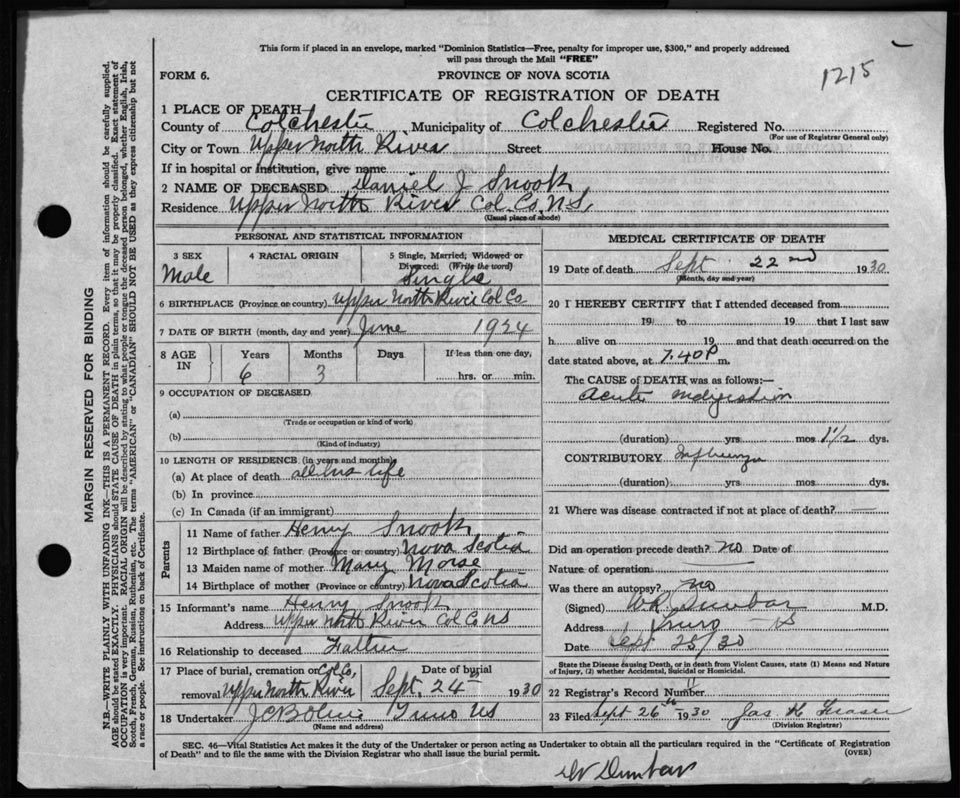 This form if placed in an envelope, marked "Dominion Statistics—Free, penalty for improper use, $300," and properly addressed
will pass through the Mail "FREE"
1215
FORM 6.
PROVINCE OF NOVA SCOTIA
CERTIFICATE OF REGISTRATION OF DEATH
1 PLACE OF DEATH—
County of Colchester Municipality of Colchester Registered No.
(For use of Registrar General only)
City or Town Upper North River Street House No.
If in hospital or Institution, give name
2 NAME OF DECEASED Daniel J Snook
Residence Upper North River Col. Co. N.S.
(Usual place of abode)
PERSONAL AND STATISTICAL INFORMATION
3 SEX
Male
4 RACIAL ORIGIN
5 Single, Married, Widowed or
Divorced: (Write the word)
Single
6 BIRTHPLACE (Province or country) Upper North River Col Co
7 DATE OF BIRTH (month, day and year) June 1924
8 AGE
IN
Years
6
Months
3
Days
If less than one day,
hrs. or min.
9 OCCUPATION OF DECEASED
(a)
(Trade or occupation or kind of work)
(b)
(Kind of industry)
10 LENGTH OF RESIDENCE (in years and months)
(a) At place of death all his life
(b) In province
(c) In Canada (if an immigrant)
Parents
11 Name of father Henry Snook
12 Birthplace of father (Province or country) Nova Scotia
13 Maiden name of mother Mary Morse
14 Birthplace of mother (Province or country) Nova Scotia
15 Informant's name Henry Snook
Address Upper North River Col Co NS
16 Relationship to deceased Father
17 Place of burial, cremation or Col Co,
removal Upper North River
Date of burial
Sept. 24 1930
18 Undertaker Truro NS
(Name and address)
MEDICAL CERTIFICATE OF DEATH
19 Date of death Sept 22nd 1930
(Month, day and year)
20 I HEREBY CERTIFY that I attended deceased from
19 to 19 that I last saw
h alive on 19 and that death occurred on the
date stated above, at 7.40 P m.
The CAUSE OF DEATH was as follows:—
Acute Indigestion
(duration) yrs mos 1 1/2 dys.
CONTRIBUTORY Influenza
(duration) yrs. mos. dys.
21 Where was disease contracted if not at place of death? —
Did an operation precede death? no Date of
Nature of operation
Was there an autopsy? no
(Signed) Dunbar M.D.
Address Truro NS
Date Sept 25/30
State the Disease causing Death, or in death from Violent Causes, state (1) Means and Nature
of Injury, (2) whether Accidental, Suicidal or Homicidal.
22 Registrar's Record Number 11
23 Filed Sept 26th 1930 Jas H Fraser
(Division Registrar)
SEC. 46—Vital Statistics Act makes it the duty of the Undertaker or person acting as Undertaker to obtain all the particulars required in the "Certificate of Registration
of Death" and to file the same with the Division Registrar who shall issue the burial permit.
(OVER)
Dr Dunbar
MARGIN RESERVED FOR BINDING
N.B.—WRITE PLAINLY WITH UNFADING INK—THIS IS A PERMANENT RECORD. Every item of information should be carefully supplied.
AGE should be stated EXACTLY. PHYSICIANS should STATE CAUSE OF DEATH in plain terms, so that it may be properly classified. Exact statement of
OCCUPATION is very important. RACIAL ORIGIN will be described by stating to what people or tongue the deceased person belonged, whether English, Irish,
Scotch, French, German, Russian, Ruthenian, etc. The terms "AMERICAN" or "CANADIAN" SHOULD NOT BE USED as they express citizenship but not
a race or people. See instructions on back of Certificate.